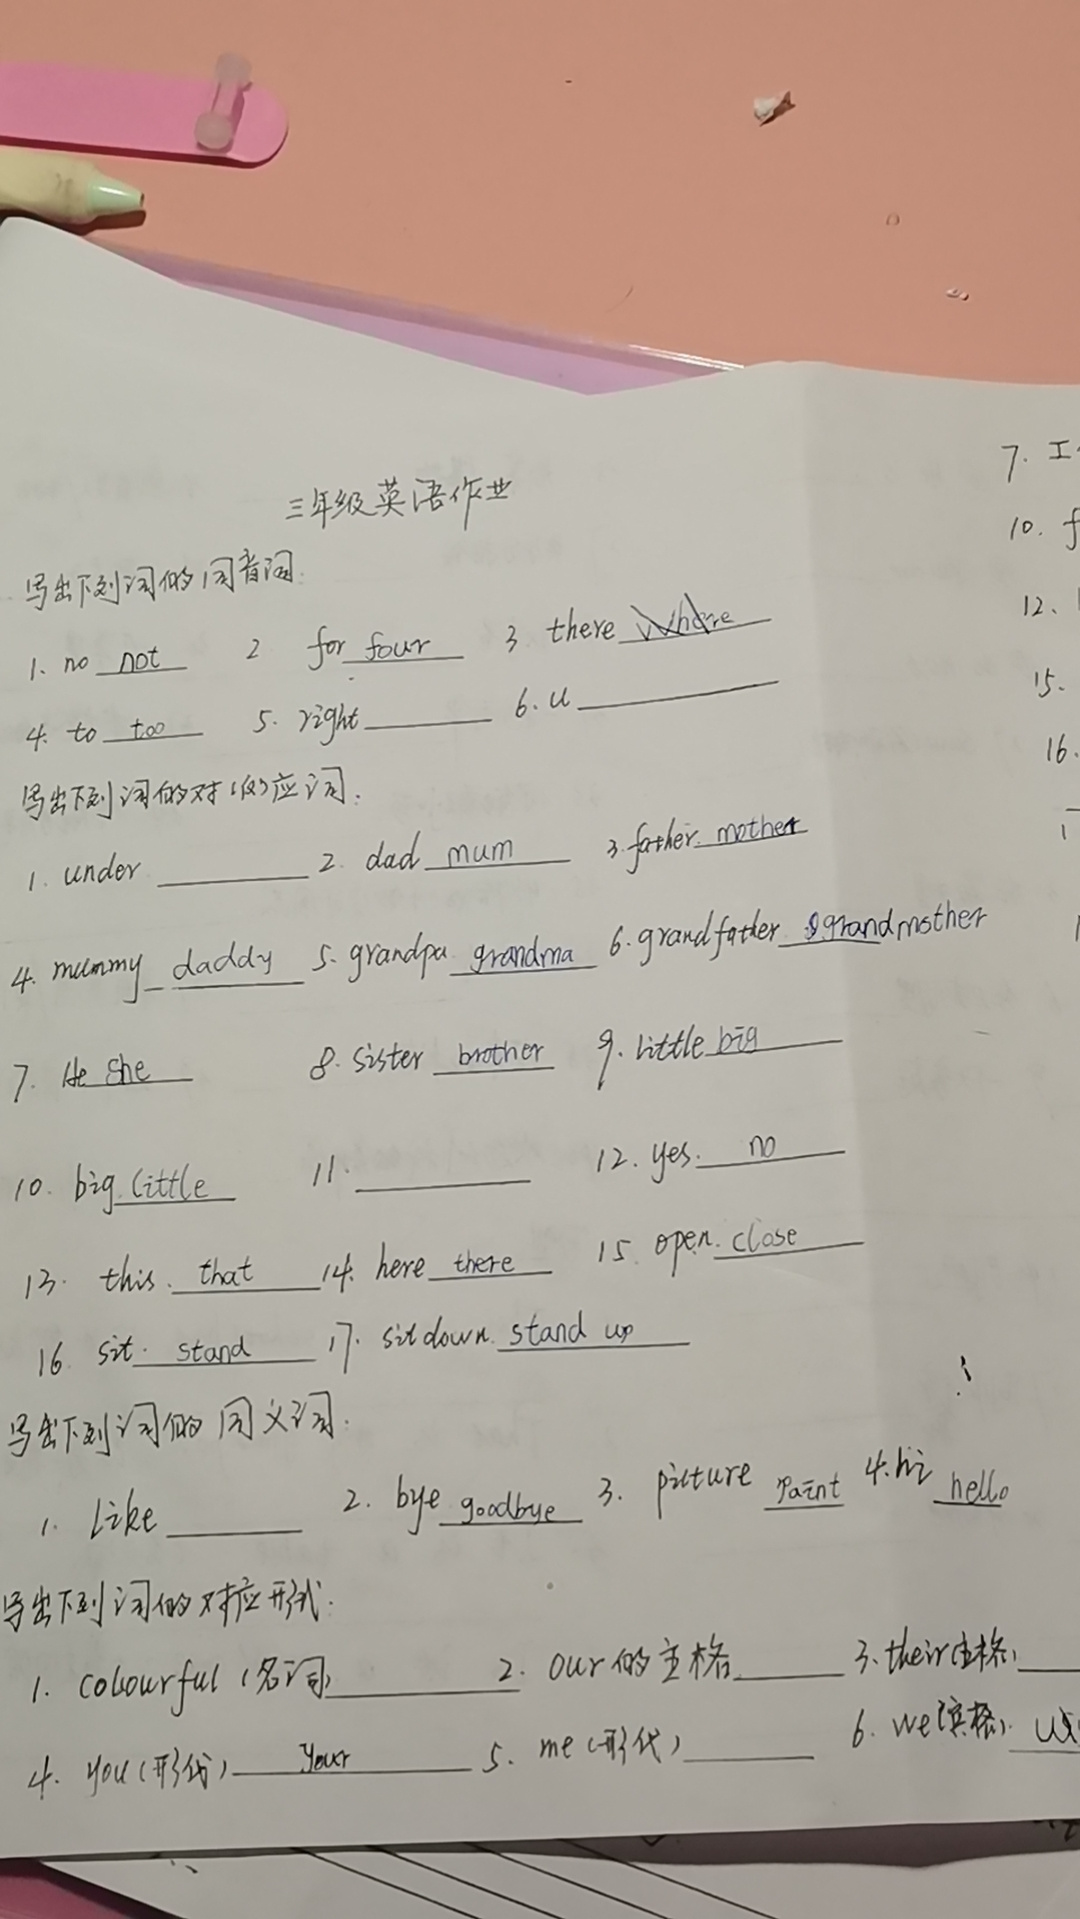 三年级英语作业
写出下列词的同音词:
1. no not 2 for four 3 there
4. to too 5. right 6. u
写出下列词的对(反)应词:
1. under 2. dad mum 3. father. mother
4. mummy daddy 5. grandpa grandma 6. grandfather grandmother
7. He She 8. sister brother 9. little big
10. big. little 11. 12. yes. no
13. this. that 14. here there 15. open. close
16. sit. stand 17. sit down. stand up
写出下列词的同义词:
1. Like 2. bye goodbye 3. picture Paint 4. hi hello
写出下列词的对应形式:
1. colourful (名词) 2. our的主格 3. their(主格)
4. you (形代) your 5. me (形代) 6. we(宾格).
7.
10. f
12.
15.
16.